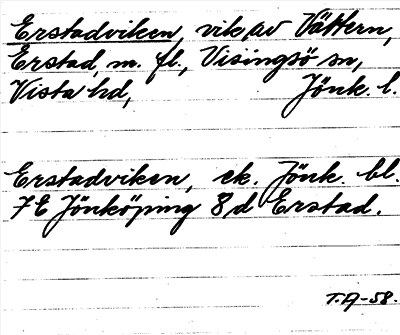 Erstadviken, vik av Vättern,
Erstad m. fl., Visingsö sn,
Vista hd, Jönk. l.
Erstadviken, ek. Jönk. bl.
7E Jönköping 8d Erstad.
T.A-58.